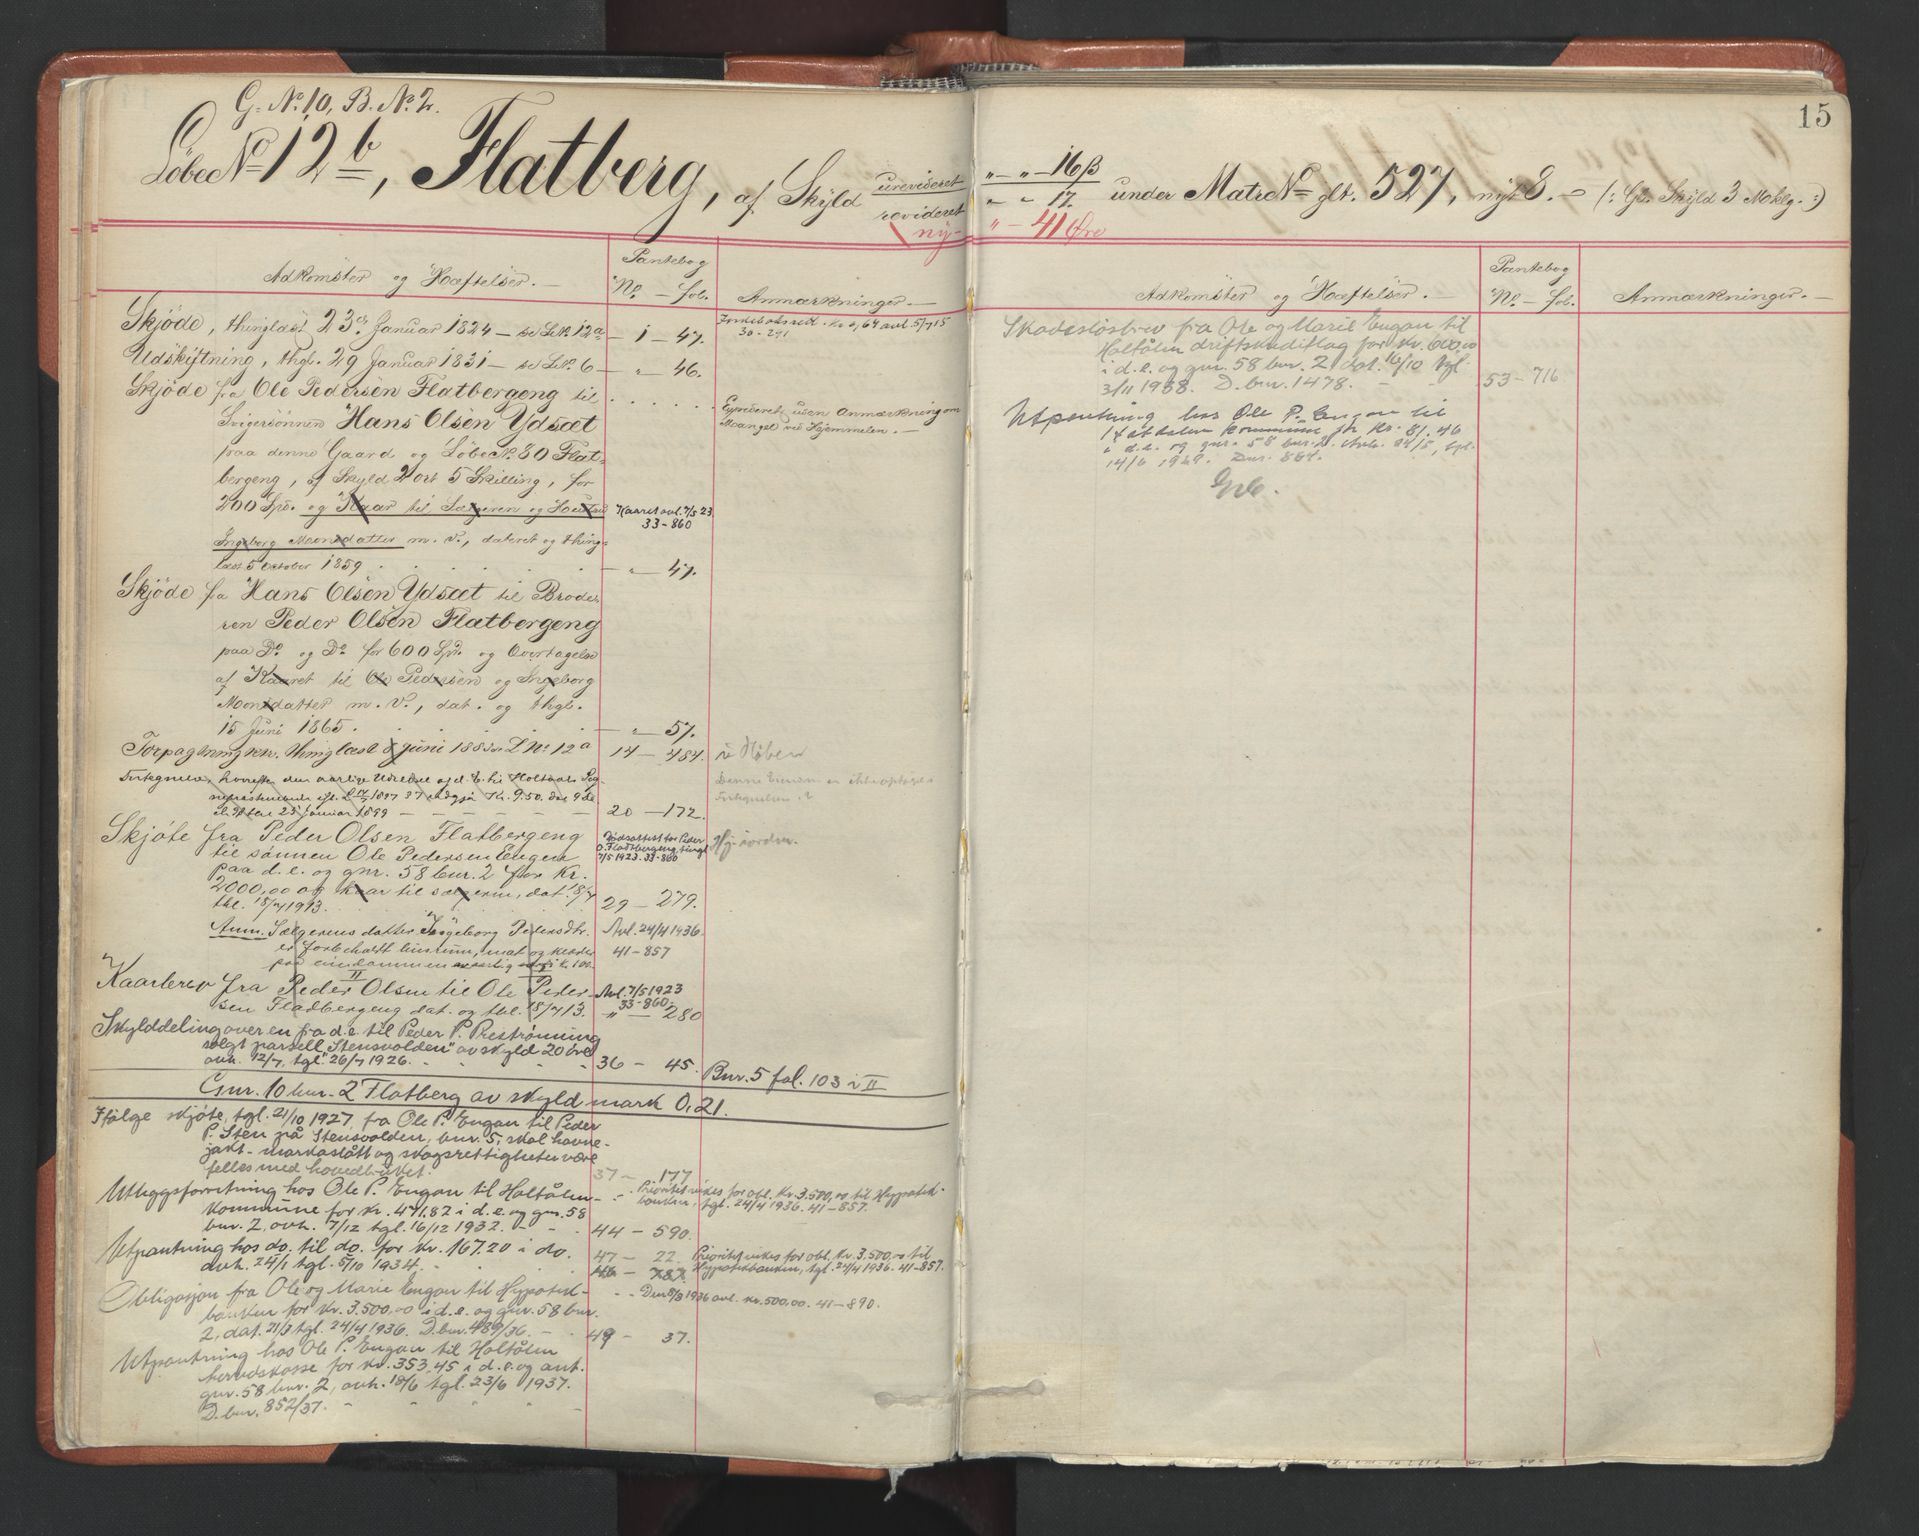 G. No. 10, B. No. 2.
15
Løbe No 12 b, Flatberg, af Skyld urevideret " - " - 16 β under Matr No glt. 527, nyt 8. - (: Gl. Skyld 3 Mæklg. :)
revideret " " 17.
ny- " - 41 Øre
Adkomster og Hæftelser. -
Pantebog
No. - fol.
Anmærkninger. -
Skjøde, thinglæst 23de Januar 1824 - se L.No. 12a - 1 - 47.
Udskiftning, thgl. 29 Januar 1831 - se L.No. 6 - " - 46.
Skjøde fra Ole Pedersen Flatbergeng til . . . . .
Svigersønnen Hans Olsen Ydsæt
paa denne Gaard og Løbe No. 80 Flat-
bergeng, af Skyld 2 ort 5 Skilling, for
200 Spd. og Kaar til Sælgeren og Hustru Kaaret avl. 7/5 23
33-860
Ingeborg Monsdatter m. v., dateret og thing-
læst 5 October 1859 . . . . . - " - 47.
Eqviderer uden Anmærkning om
Mangel ved Hjemmelen. -
Skjøde fra Hans Olsen Ydsæt til Brode-
ren Peder Olsen Flatbergeng
paa Do. og Do. for 600 Spd. og Overtagelse
af Kaaret til Ole Pedersen og Ingeborg
Monsdatter m. V., dat. og thgl.
15 Juni 1865 . . . . - " - 57.
thinglæst 8 Juni 1883 L No 12 a 14 - 484.
20 - 172.
Skjøte fra Peder Olsen Flatbergeng
til sønnen Ole Pedersen Engan
paa d.e. og gnr. 58 bnr. 2 for Kr.
2000,00 og kaar til sælgeren, dat. 18/7
tbl. 18/7 1913. 29 - 279.
Dødsattest for Peder
O. Fladbergeng, tingl.
7/5 1923. 33-860
Hj. i orden.
Anm. Sælgerens datter Ingeborg Pedersdtr. Avl. 24/4 1936.
er forbeholdt husrum, mat og klæder 41-857
paa eiendommen kr. 100.-
Kaarbrev fra Peder Olsen til Ole Peder- Avl. 7/5 1923
33-860.
sen Fladbergeng dat. og tbl. 18/7 13. " - 280
Skylddeling over en fra d.e. til Peder P. Prestrønning
solgt parsell "Stensvolden" av skyld 20 øre
avh. 12/7, tgl. 26/7 1926. 36 - 45. Bnr. 5 fol. 103 i II
Gnr. 10 bnr. 2 Flatberg av skyld mark 0,21.
Ifølge skjøte, tgl. 21/10 1927, fra Ole P. Engan til Peder
P. Sten på Stensvolden, bnr. 5, skal havne-
jakt- markaslått og skogsrettigheter være
felles med hovedbruket. 37 - 177
Utleggsforretning hos Ole P. Engan til Holtålen
kommune for kr. 471.82 i d.e. og gnr. 58
bnr. 2 avh. 7/12 tgl. 16/12 1932. 44 - 590.
Prioritet vikes for obl. Kr. 3.500,00 til Hypotek-
banken, tgl. 24/4 1936. 41-857.
Utpantning hos do. til do. for kr. 167.20 i do. 47 - 22.
avh. 24/1 tgl. 5/10 1934.
Prioritet vikes for obl. Kr. 3.500,00 til
Hypotekbanken, tgl. 24/4 1936. 41-857.
Obligasjon fra Ole og Marie Engan til Hypotek-
banken for kr. 3.500,00 i d.e. og gnr. 58 bnr.
2, dat. 21/3 tgl. 24/4 1936. D.bnr. 489/36. 49 - 37.
1936 avl. kr. 500,00. 41-890.
Utpantning hos Ole P. Engan til Holtålen
herredskasse for kr. 353.45 i d.e. og ant.
gnr. 58 bnr. 2, avh. 18/6 tgl. 23/6 1937.
D.bnr. 852/37.
Adkomster og Hæftelser. -
Pantebog
No. - fol.
Anmærkninger. -
Skadesløsbrev fra Ole og Marie Engan til
Holtålen driftskreditlag for kr. 600,00
i d.e. og gnr. 58 bnr. 2 dat. 16/10 tgl.
3/11 1938. D.bnr. 1478. 53 - 716
Utpantning hos Ole P. Engan til
kommune for kr. 81.46
i d.e. og gnr. 58 bnr. 2. avh. 24/5, tgl.
14/6 1939. Dnr. 884.